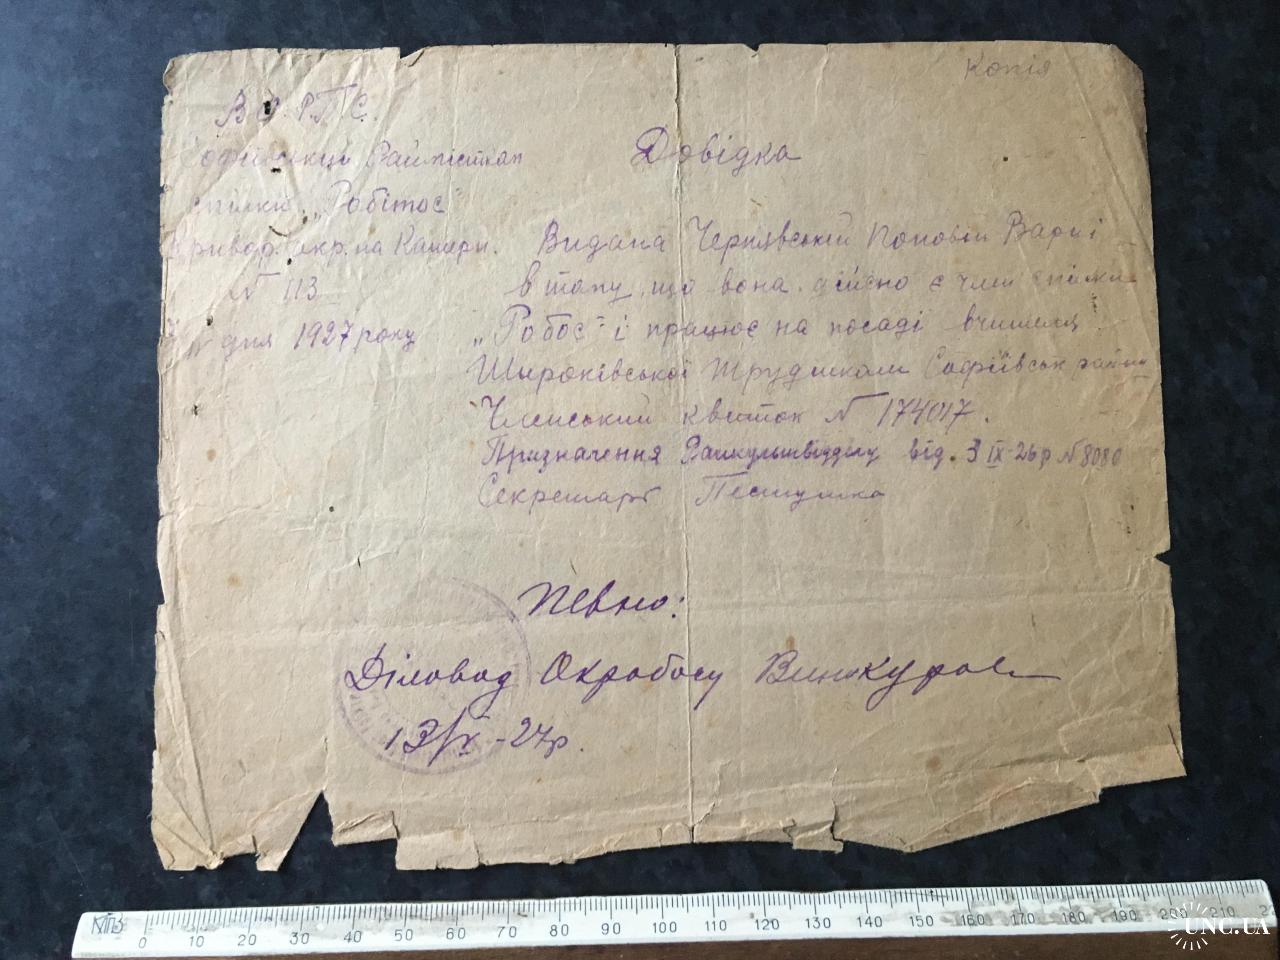 Копія
В.У.Р.П.С.
Софіївський Райместком
спілки „Робітос"
Кривор. окр. на Катери.
№ 113
дня 1927 року
Довідка
Видана Чернявській Поповій Варві
в тому, що вона дійсно є член спілки
„Робос" і працює на посаді вчителя
Широківської трудшколи Софіївськ району
Членський квиток № 174017.
Призначення Райкультвідділу від. 3 IX-26р №8080
Секретарь
Певно:
Діловод Окробосу Винокуров
13/IX-27р.
КПЗ 0 10 20 30 40 50 60 70 80 90 100 110 120 130 140 150 160 170 180 190 200 210
UNC.UA